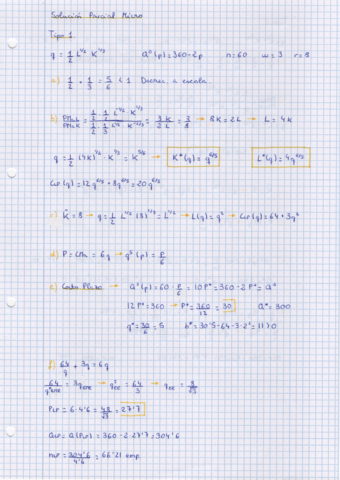 Solución Parcial Micro
Tipo 1
q = 1/2 L^1/2 · K^1/3   Q^d(p) = 360 - 2p   n = 60   w = 3   r = 8
a) 1/2 + 1/3 = 5/6 < 1 Decrec. a escala.
b) PMgL/PMgK = (1/2 · 1/2 L^-1/2 · K^1/3)/(1/2 · 1/3 L^1/2 · K^-2/3) = 3K/2L = 3/8 → 8K = 2L → L = 4K
q = 1/2 (4K)^1/2 · K^1/3 = K^5/6 → K*(q) = q^6/5   L*(q) = 4q^6/5
CLP(q) = 12q^6/5 + 8q^6/5 = 20q^6/5
c) K̄ = 8 → q = 1/2 L^1/2 (8)^1/3 = L^1/2 → L(q) = q² → CCP(q) = 64 + 3q²
d) P = CMg = 6q → q^s(p) = p/6
e) Corto Plazo → Q^s(p) = 60 · p/6 = 10P* = 360 - 2P* = Q^d
12P* = 360 → P* = 360/12 = 30   Q* = 300
q* = 30/6 = 5   b* = 30·5 - 64 - 3·5² = 11 > 0
f) 64/q + 3q = 6q
= 64/3 →
= 27'7
= 360 - 2·27'7 = 304'6
= 304'6/4'6 = 66'21 emp.